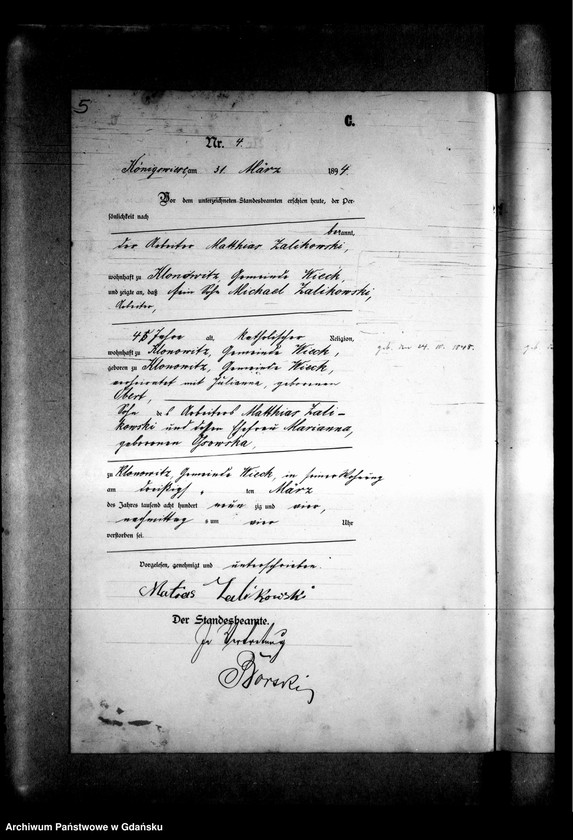 5
C.
Nr. 4.
Königswiese, am 31. März 1894.
Vor dem unterzeichneten Standesbeamten erschien heute, der Per-
sönlichkeit nach
bekannt,
der Arbeiter Matthias Zalikowski,
wohnhaft zu Klonowitz, Gemeinde Wieck,
und zeigte an, daß sein Sohn Michael Zalikowski,
Arbeiter,
45 Jahre alt, katholischer Religion,
wohnhaft zu Klonowitz, Gemeinde Wieck,
geboren zu Klonowitz, Gemeinde Wieck,
verheiratet mit Julianna, geborenen
Sohn des Arbeiters Matthias Zali-
kowski und dessen Ehefrau Marianna,
geborenen Osowska,
zu Klonowitz, Gemeinde Wieck, in seiner Wohnung
am dreißigsten März
des Jahres tausend acht hundert neunzig und vier,
nachmittags um vier Uhr
verstorben sei.
Vorgelesen, genehmigt und unterschrieben.
Matias Zalikowski
Der Standesbeamte.
In Vertretung
Borski
Archiwum Państwowe w Gdańsku